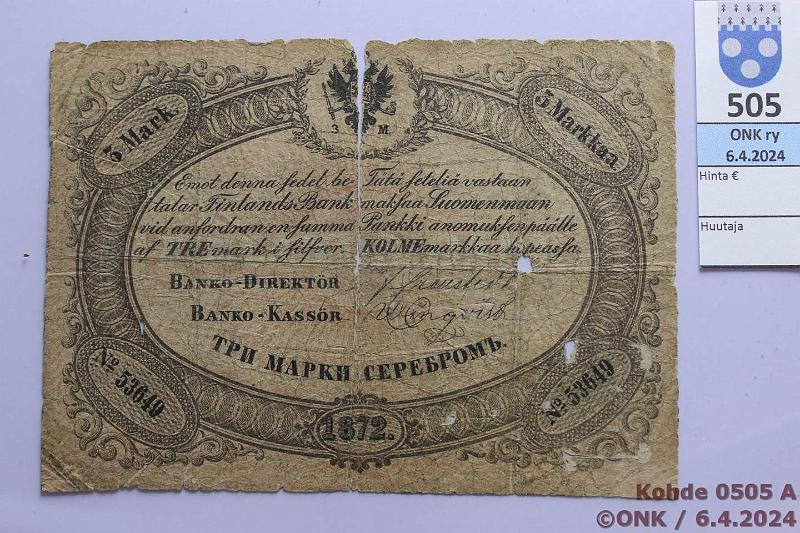 3 Mark.
3 Markkaa
3 M
Emot denna sedel be
talar Finlands Bank
vid anfordran en summa
af TRE mark i silfver.
Tätä seteliä vastaan
maksaa Suomenmaan
Pankki anomuksen päälle
KOLME markkaa hopeassa
BANKO-DIREKTÖR
BANKO-KASSÖR
ТРИ МАРКИ СЕРЕБРОМЪ.
No 53649
No 53649
1872.
505
ONK ry
6.4.2024
Hinta €
Huutaja
Kohde 0505 A
©ONK / 6.4.2024